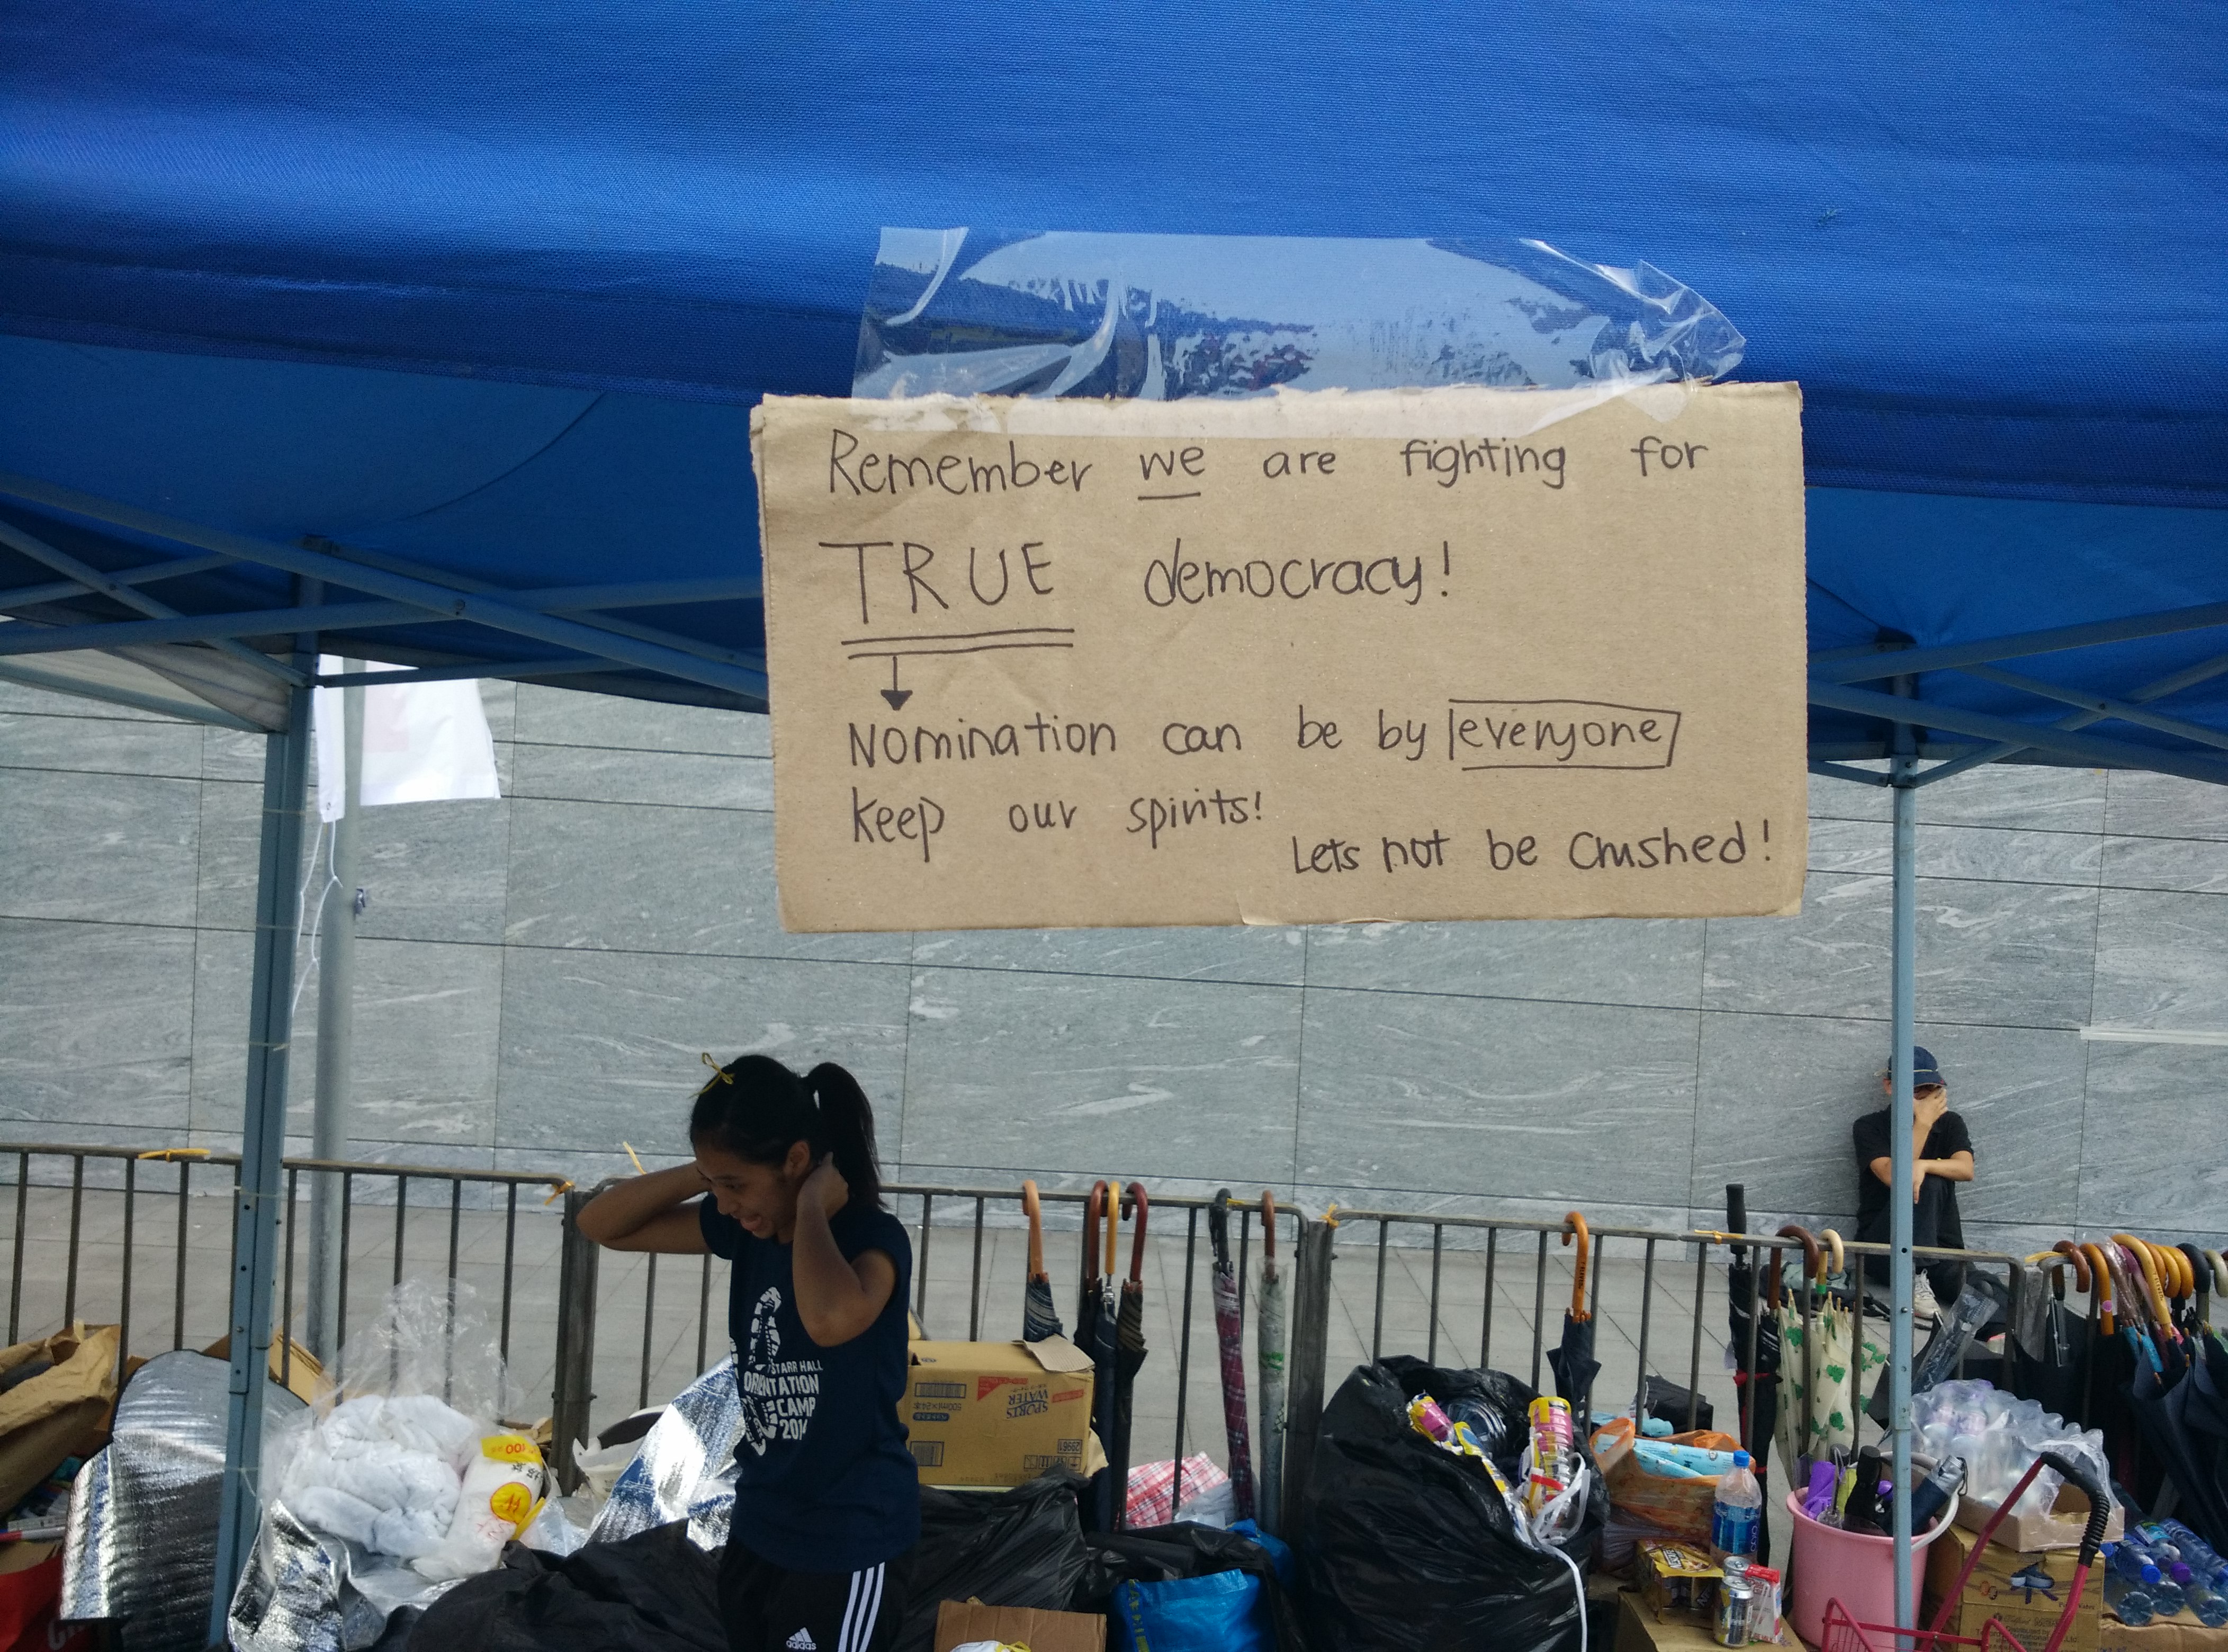 Remember we are fighting for
TRUE democracy!
Nomination can be by everyone
Keep our spirits!
Lets not be crushed!
STARR HALL
ORIENTATION
CAMP
2014
SPORTS
WATER
adidas